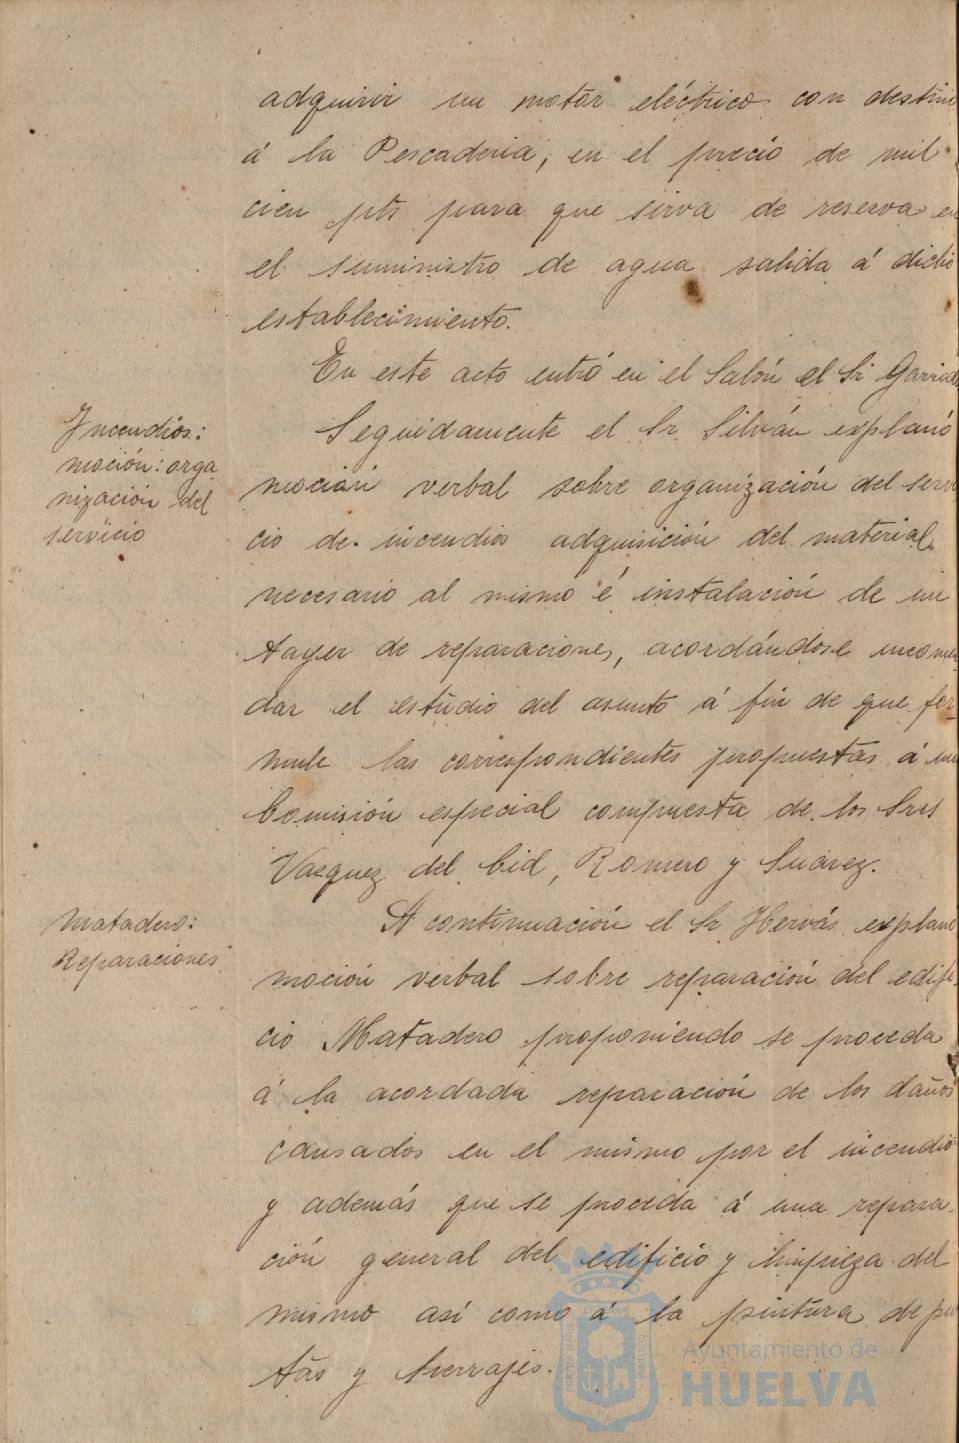 adquirir un motor eléctrico con destino
á la Pescaderia, en el precio de mil
cien pts para que sirva de reserva en
el suministro de agua salida á dicho
establecimiento.
En este acto entró en el Salón el Sr Garrido
Incendios:
moción: orga
nización del
servicio
Seguidamente el Sr. Silván explanó
moción verbal sobre organización del servi
cio de incendios adquisición del material
necesario al mismo é instalación de un
tayer de reparaciones, acordándose encomen
dar el estudio del asunto á fin de que for
mule las correspondientes propuestas á una
Comisión especial compuesta de los Sres
Vazquez del Cid, Romero y Suárez.
Matadero:
Reparaciones
A continuación el Sr Hervás explanó
moción verbal sobre reparación del edifi-
cio Matadero proponiendo se proceda
á la acordada reparación de los daños
causados en el mismo por el incendio
y además que se proceda á una repara-
ción general del edificio y limpieza del
mismo así como á la pintura de puer
tas y herrajes.
Ayuntamiento de
HUELVA